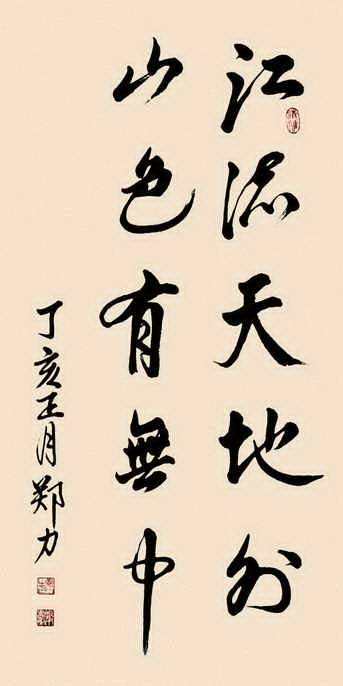 江流天地外
山色有無中
丁亥正月郑力